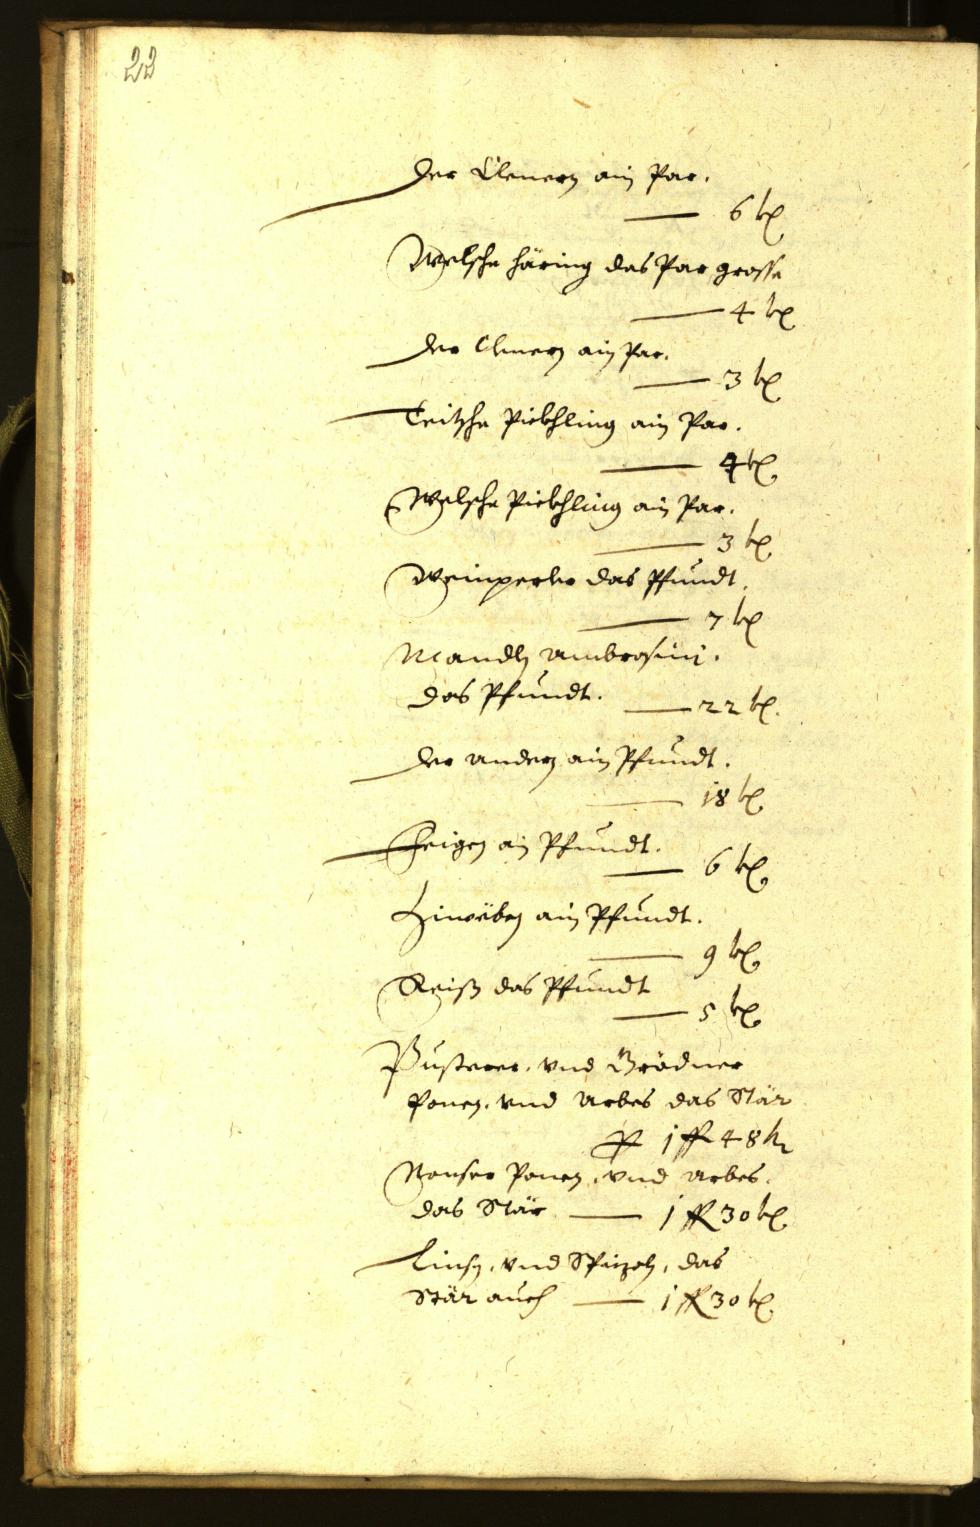 22
Der Clenern ain Par.
6 kr
Welsche häring das Par grosse
4 kr
Der Clenern ain Par.
3 kr
Teitsche Pickhling ain Par.
4 kr
Welsche Pickhling ain Par.
3 kr
Weinperler das Pfundt.
7 kr
Mandln ambrosini.
das Pfundt. 22 kr.
Der andern ain Pfundt.
18 kr
Feigen ain Pfundt.
6 kr
Ziweben ain Pfundt.
9 kr
Reiß das Pfundt
5 kr
Pusterer, vnd Grödner
Ponen, vnd Arbes das Stär
1 fl 48 kr
Nonser Ponen, vnd arbes.
das Stär 1 fl 30 kr
Linsn, vnd, das
Stär auch 1 fl 30 kr